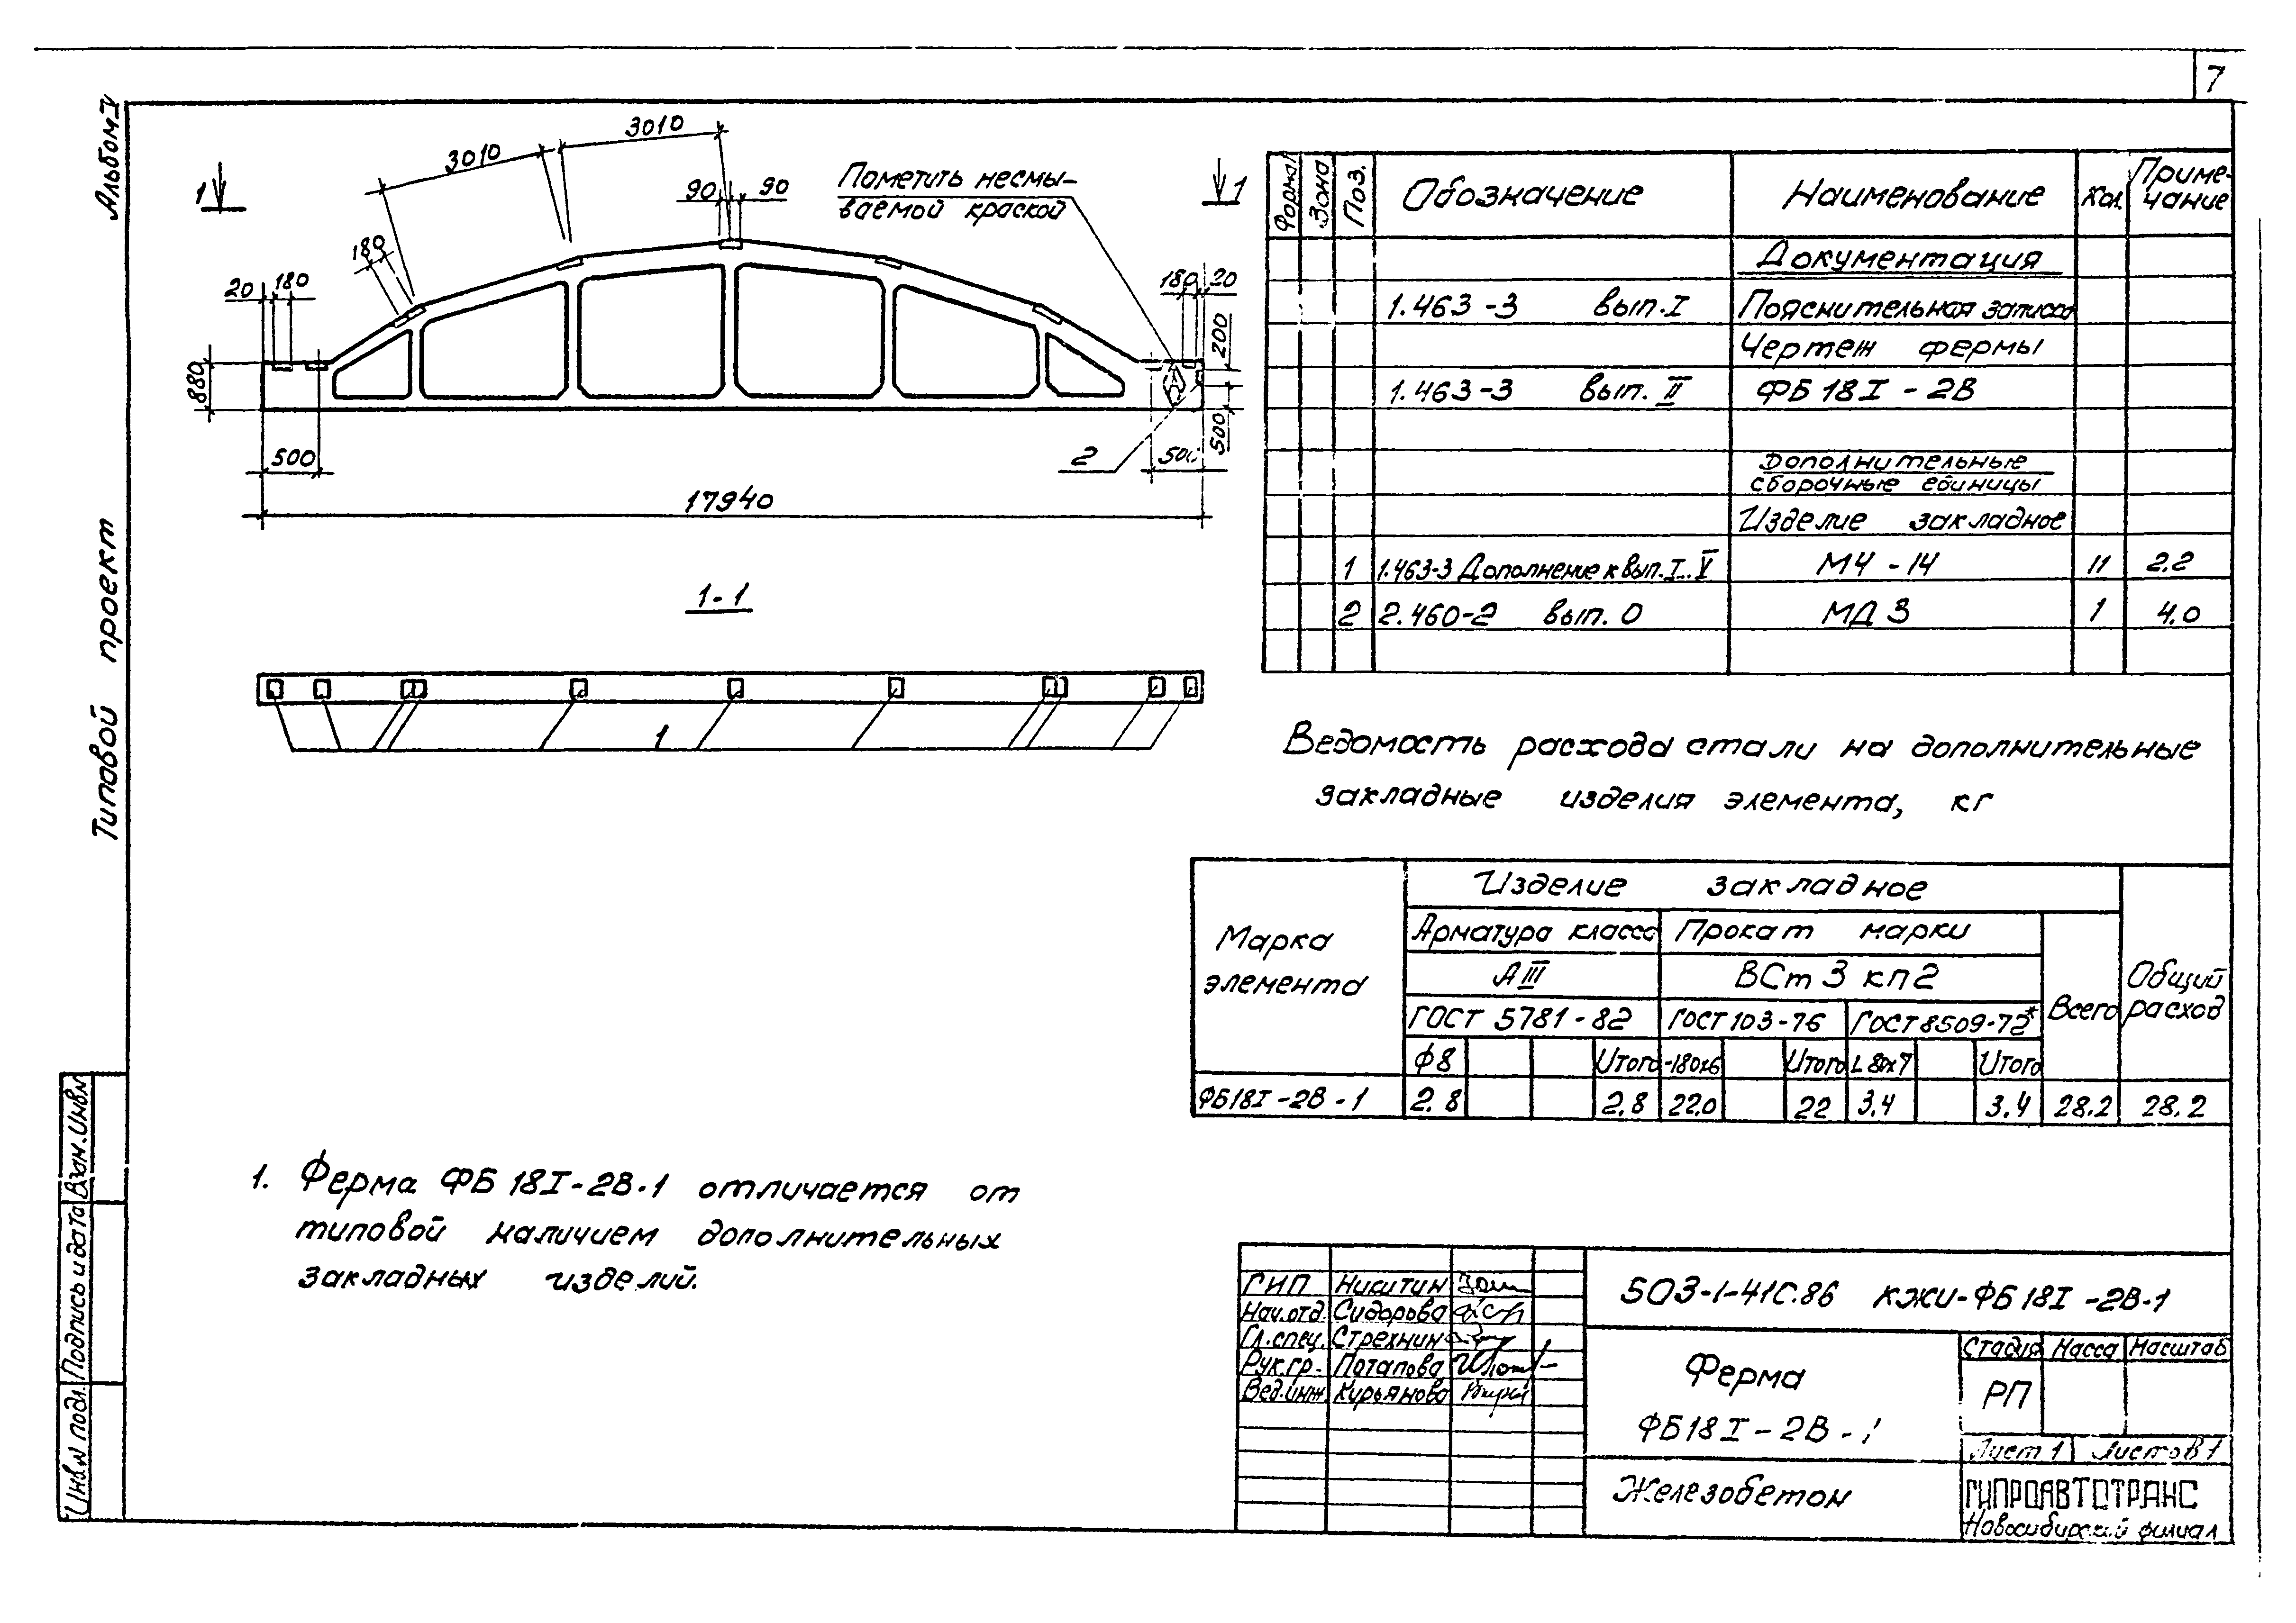 7
Альбом V
Типовой проект
3010
3010
90
90
Пометить несмы-
ваемой краской
1
1
180
20 180
180 20
200
880
А
500
500
2
500
17940
1-1
1
Формат Зона Поз. Обозначение Наименование Кол. Приме-
чание
Документация
1.463-3 вып. I Пояснительная записка
Чертеж фермы
1.463-3 вып. II ФБ 18I - 2В
Дополнительные
сборочные единицы
Изделие закладное
1 1.463-3 Дополнение к вып. I...V М4-14 11 2.2
2 2.460-2 вып. 0 МД 3 1 4.0
Ведомость расхода стали на дополнительные
закладные изделия элемента, кг
Марка
элемента
Изделие закладное
Арматура класса Прокат марки
А III ВСт 3 кп 2
ГОСТ 5781-82 ГОСТ 103-76 ГОСТ 8509-72*
Всего
Общий
расход
Ф8 Итого -180х6 Итого L 80х7 Итого
ФБ18I-2В-1 2.8 2,8 22.0 22 3,4 3.4 28.2 28.2
1. Ферма ФБ 18I-2В-1 отличается от
типовой наличием дополнительных
закладных изделий.
Взам. Инв.№
Подпись и дата
Инв.№ подл.
ГИП Никитин
Нач.отд. Сидорова
Гл.спец. Стрехнин
Рук.гр. Потапова
Вед.инж. Курьянова
503-1-41С.86 КЖИ-ФБ18I-2В-1
Ферма
ФБ18I-2В-1
Стадия Масса Масштаб
РП
Лист 1 Листов 1
Железобетон
ГИПРОАВТОТРАНС
Новосибирский филиал